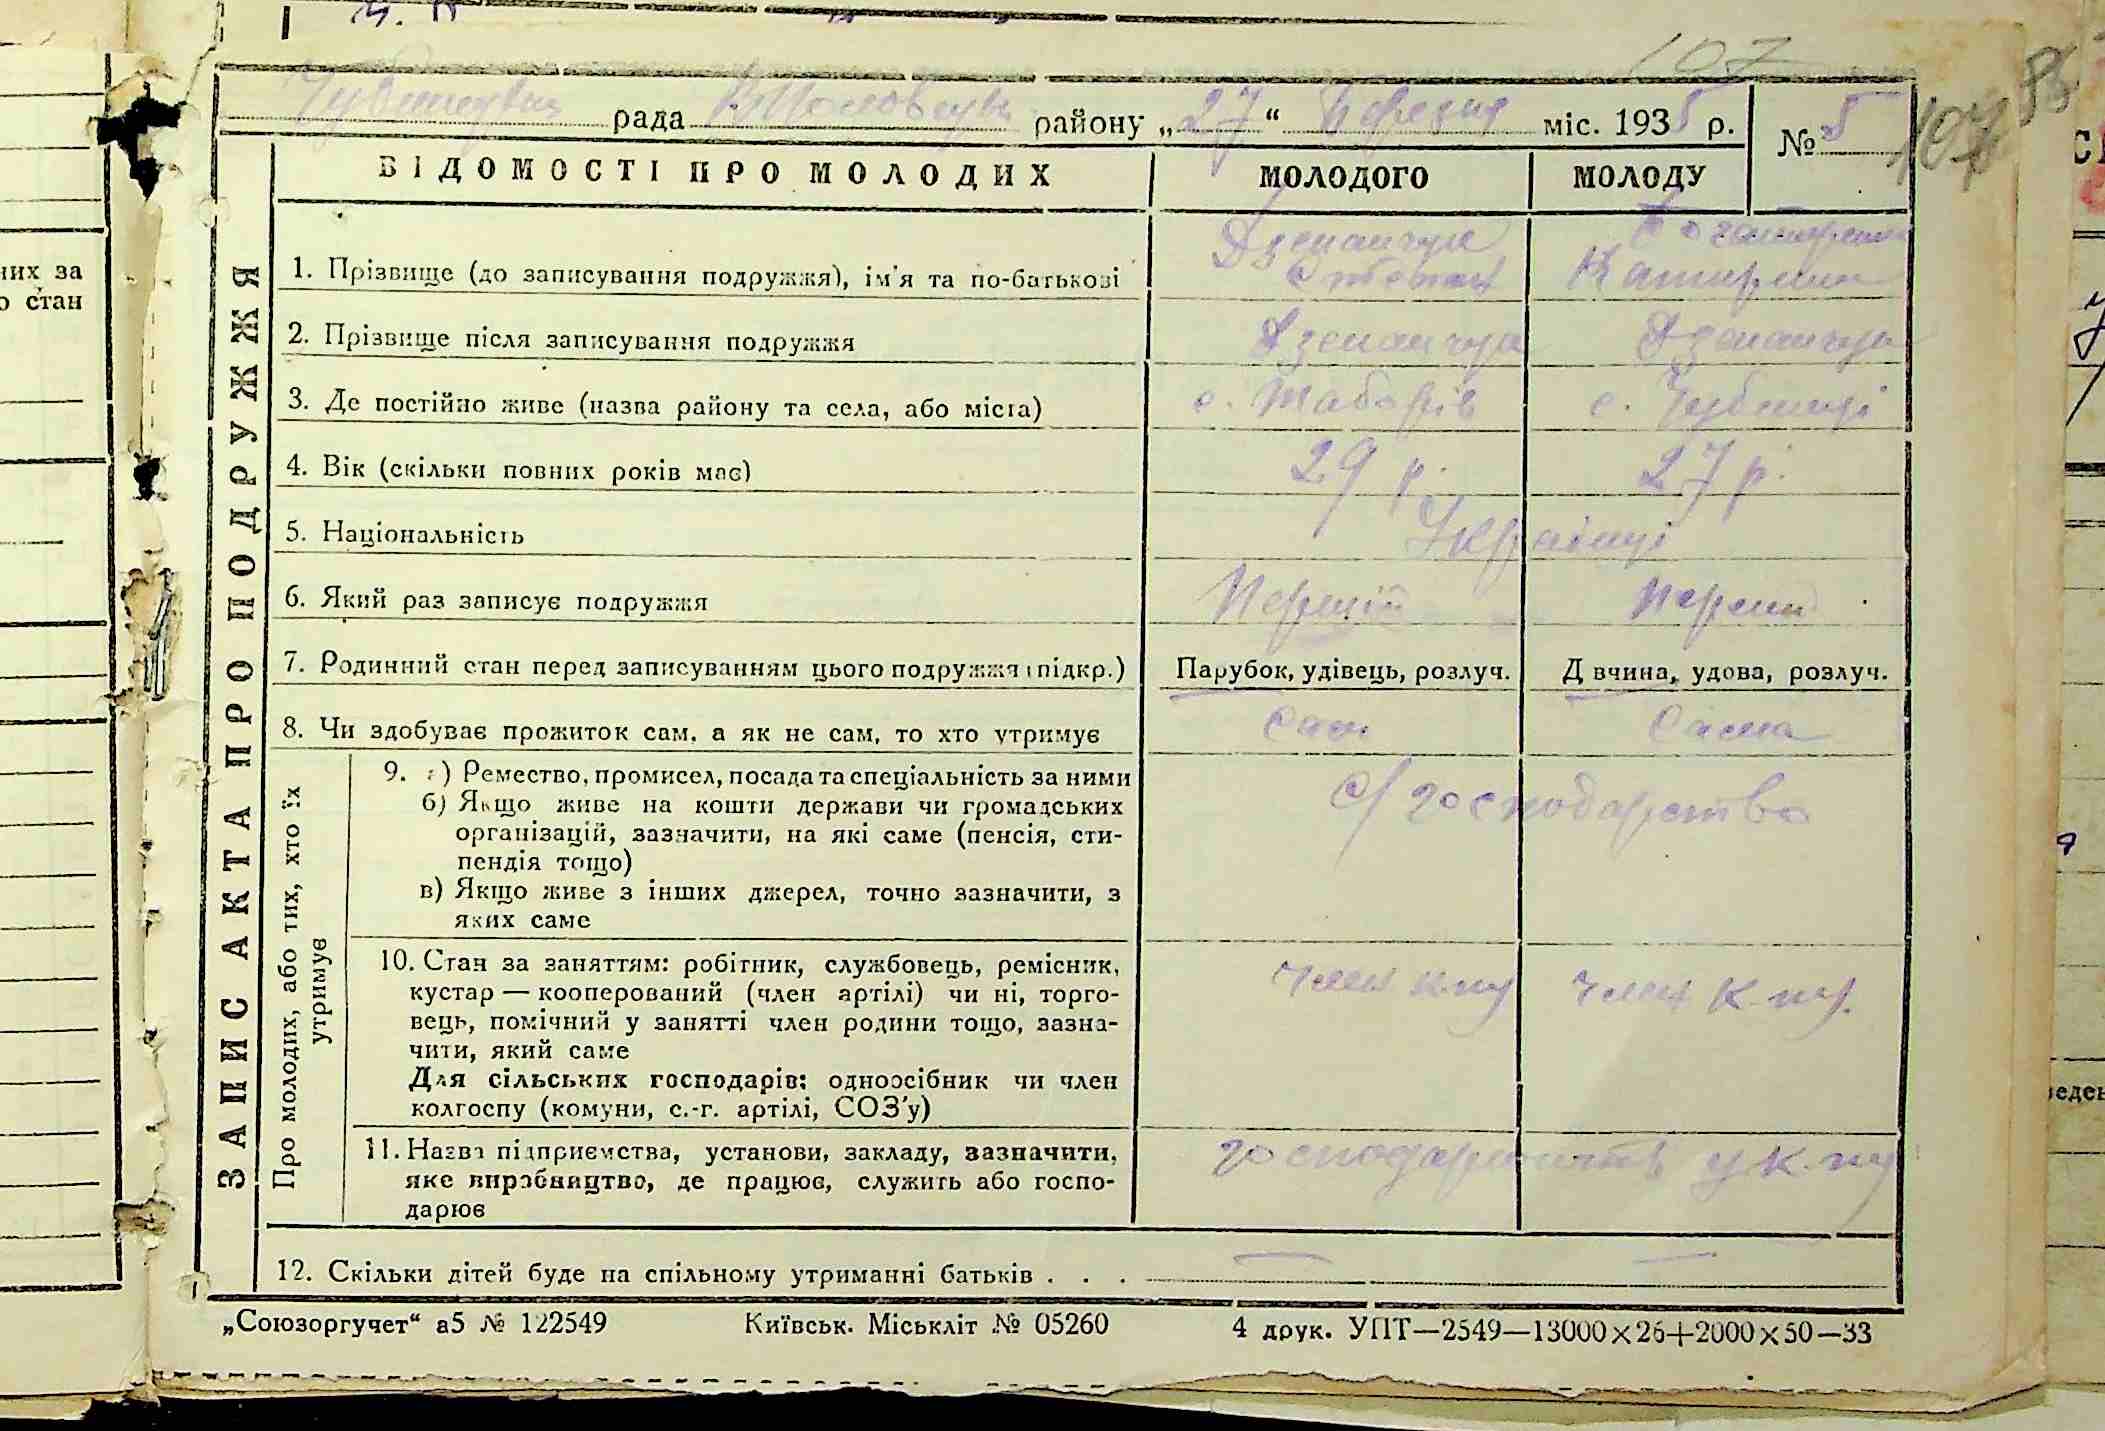 107
рада району „27“ березня міс. 1935 р. № 5
107
ВІДОМОСТІ ПРО МОЛОДИХ МОЛОДОГО МОЛОДУ
ЗАПИС АКТА ПРО ПОДРУЖЖЯ
1. Прізвище (до записування подружжя), ім'я та по-батькові
Степан Катерина
2. Прізвище після записування подружжя
3. Де постійно живе (назва району та села, або міста) с. Таборів с. Чубинці
4. Вік (скільки повних років має) 29 р. 27 р.
5. Національність Українці
6. Який раз записує подружжя Перший Перший
7. Родинний стан перед записуванням цього подружжя (підкр.) Парубок, удівець, розлуч. Д вчина, удова, розлуч.
8. Чи здобуває прожиток сам, а як не сам, то хто утримує Сам Сама
Про молодих, або тих, хто їх
утримує
9. а) Ремество, промисел, посада та спеціальність за ними
с/господарство
б) Якщо живе на кошти держави чи громадських
організацій, зазначити, на які саме (пенсія, сти-
пендія тощо)
в) Якщо живе з інших джерел, точно зазначити, з
яких саме
10. Стан за заняттям: робітник, службовець, ремісник,
член к-пу член к-пу.
кустар — кооперований (член артілі) чи ні, торго-
вець, помічний у занятті член родини тощо, зазна-
чити, який саме
Для сільських господарів: одноосібник чи член
колгоспу (комуни, с.-г. артілі, СОЗ'у)
11. Назва підприємства, установи, закладу, зазначити,
у к-пу
яке виробництво, де працює, служить або госпо-
дарює
12. Скільки дітей буде на спільному утриманні батьків . . . — —
„Союзоргучет“ а5 № 122549 Київськ. Міськліт № 05260 4 друк. УПТ—2549—13000×26+2000×50—33
них за
о стан